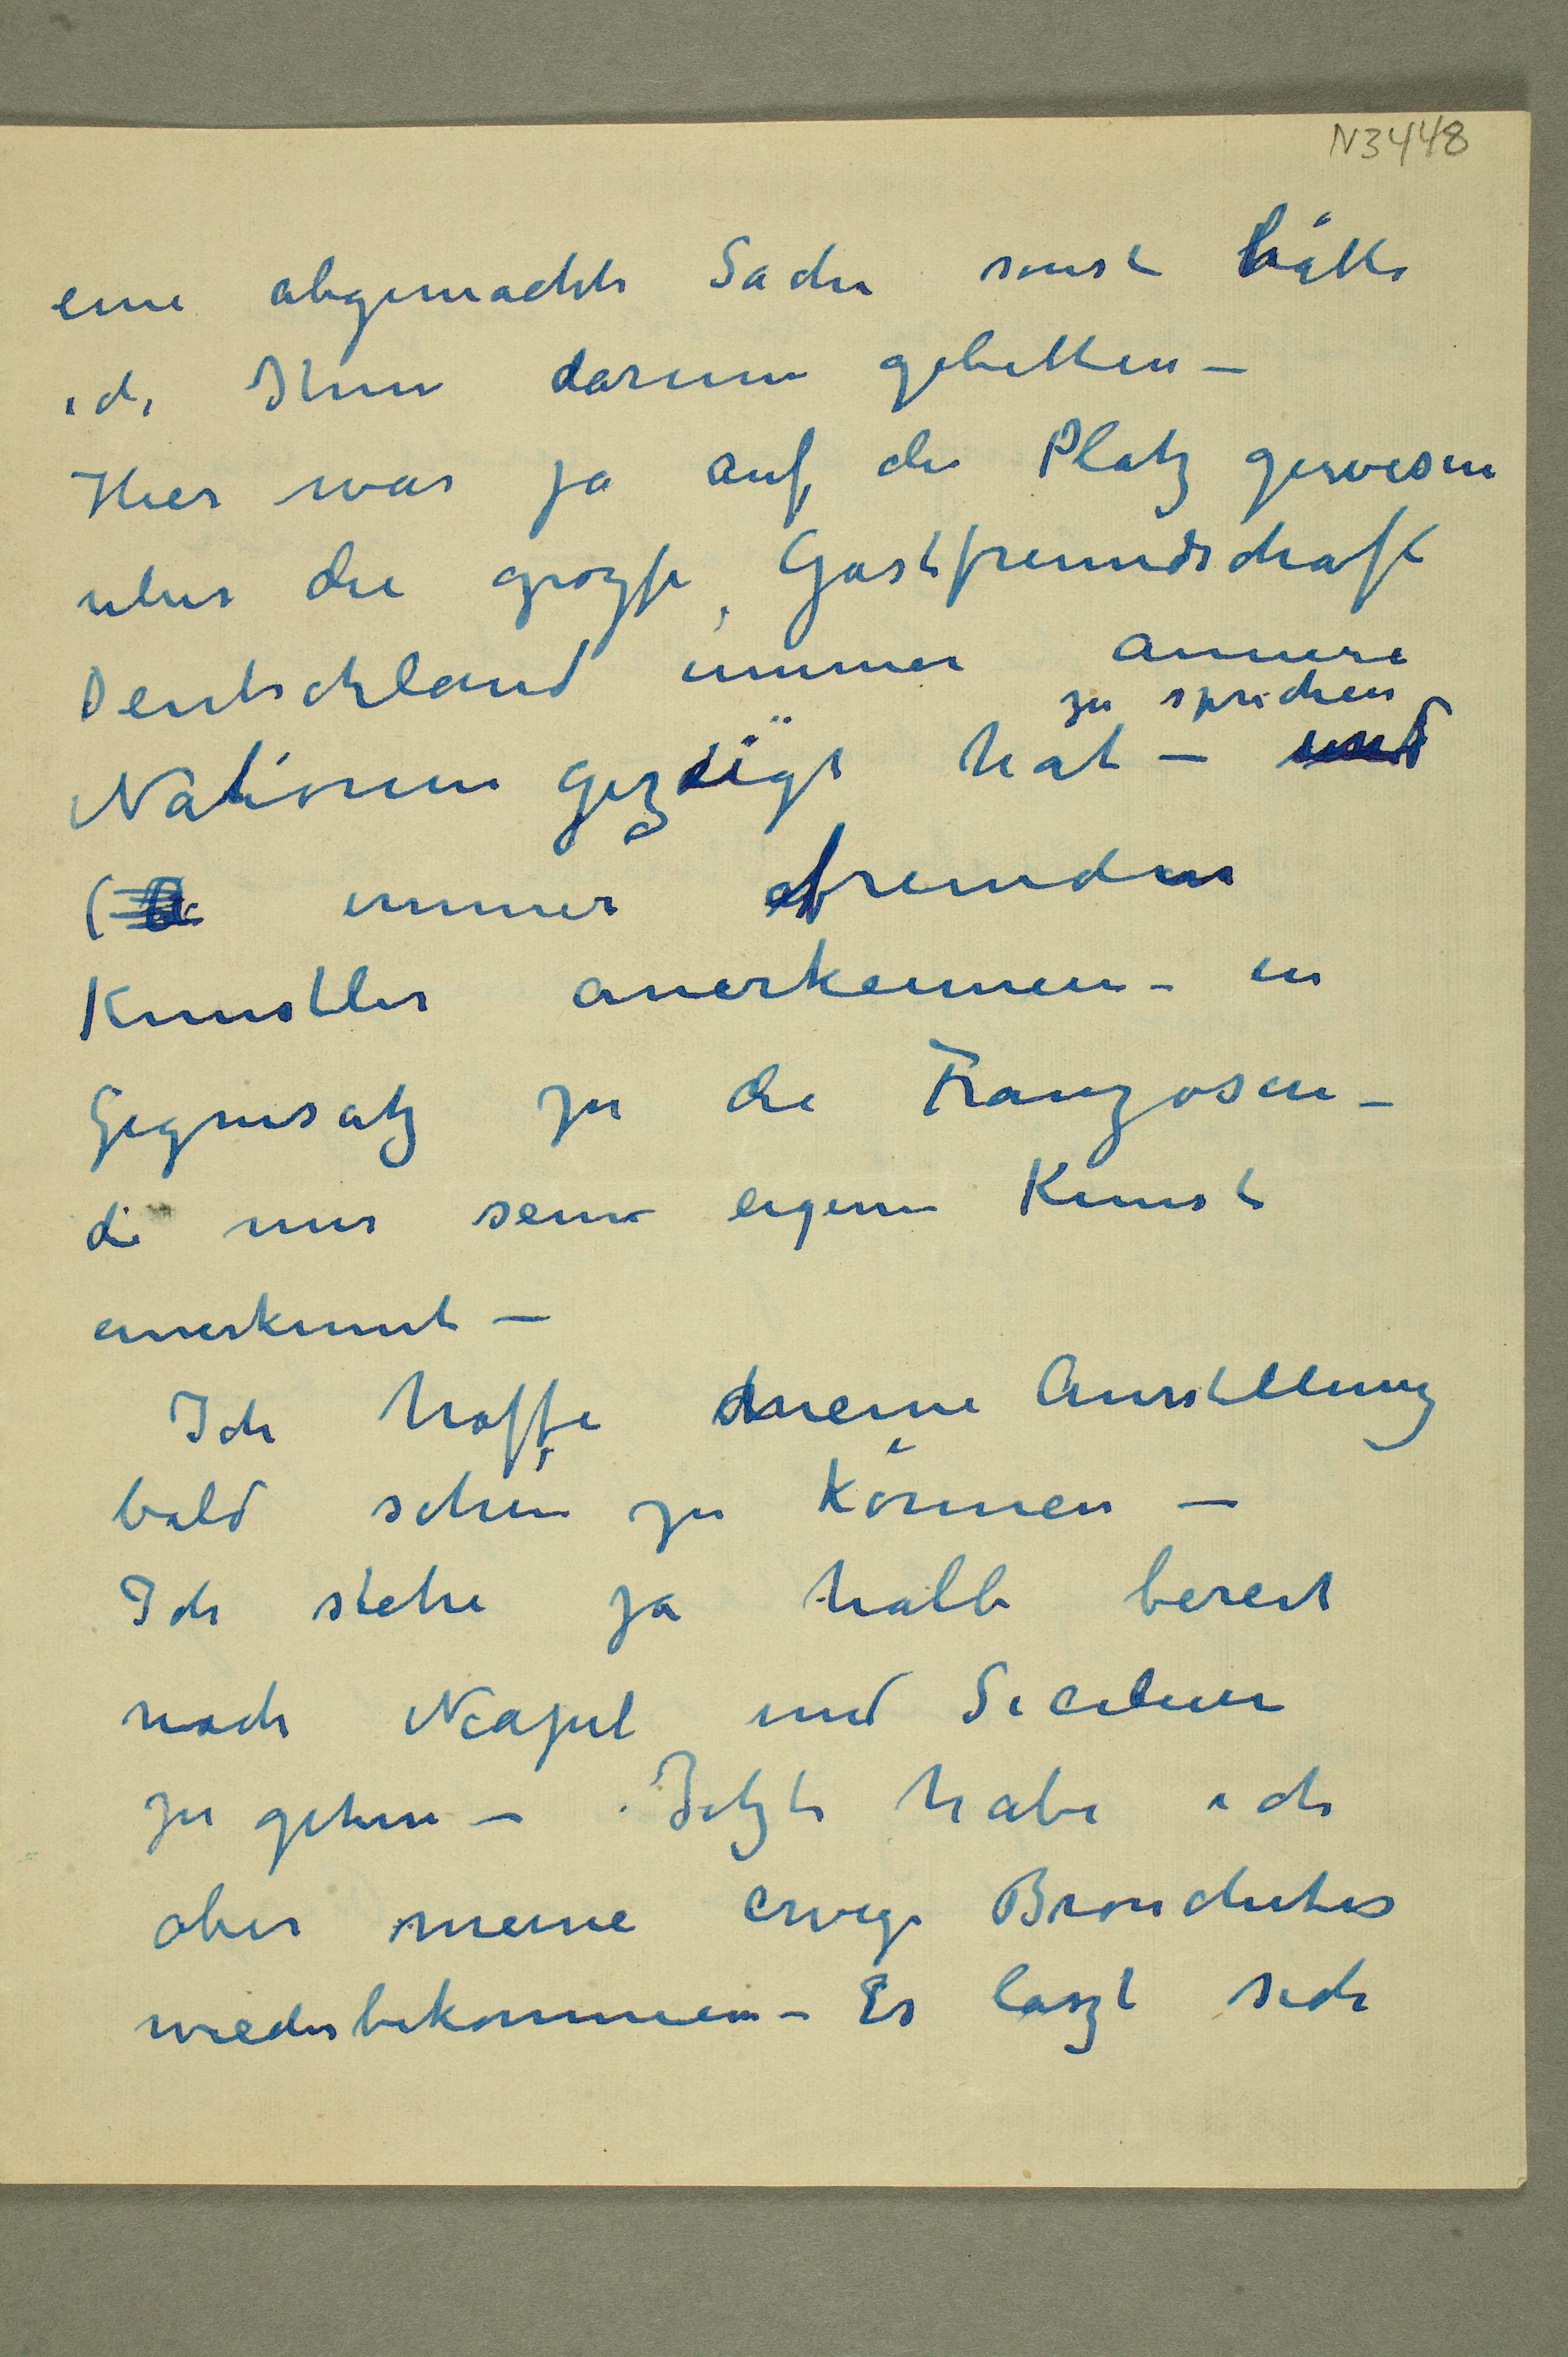 N3448
eine abgemachte Sache sonst hätte
ich Ihnen darum gebetten –
Hier war ja auf die Platz gewesen
uber die grozse Gastfreundschaft
Deutschland immer annere
zu sprechen
Nationen gezeigt hat – und
( immer fremden
Kunstler anerkennen – in
Gegensatz zu die Franzosen –
die nur seine eigene Kunst
anerkennt –
Ich hoffe meine Ausstellung
bald sehen zu können –
Ich stehe ja halb bereit
nach Neapel und Sicilien
zu gehen – Jetzt habe ich
aber meine ewige Bronchites
wiederbekommen – Es laszt sich